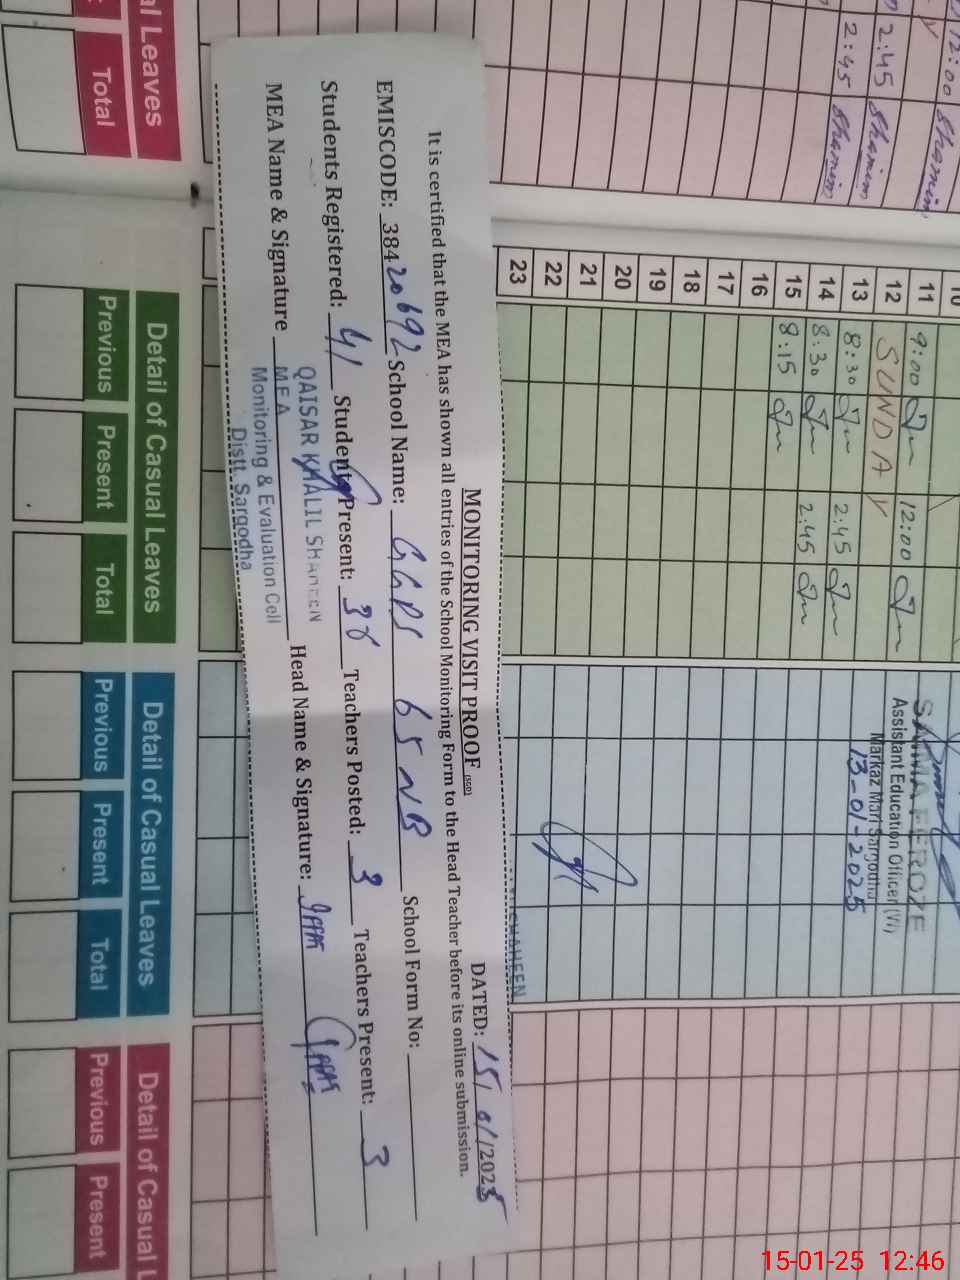 MONITORING VISIT PROOF (SGD)
DATED: 15/01/2025
It is certified that the MEA has shown all entries of the School Monitoring Form to the Head Teacher before its online submission.
EMISCODE: 38420692 School Name: GGPS 65 NB School Form No:
Students Registered: 41 Students Present: 38 Teachers Posted: 3 Teachers Present: 3
MEA Name & Signature Head Name & Signature:
QAISAR KHALIL SHAHEEN
MEA
Monitoring & Evaluation Cell
Distt. Sargodha
12:00 Shamim
2:45 Shamim
2:45 Shamim
10
11 9:00 12:00
12 SUNDAY
13 8:30 2:45
14 8:30 2:45
15 8:15
16
17
18
19
20
21
22
23
SAIMA FEROZE
Assistant Education Officer (W)
Markaz Mari Sargodha
13-01-2025
SHAHEEN
al Leaves
Total
Detail of Casual Leaves
Previous Present Total
Detail of Casual Leaves
Previous Present Total
Detail of Casual L
Previous Present
15-01-25 12:46